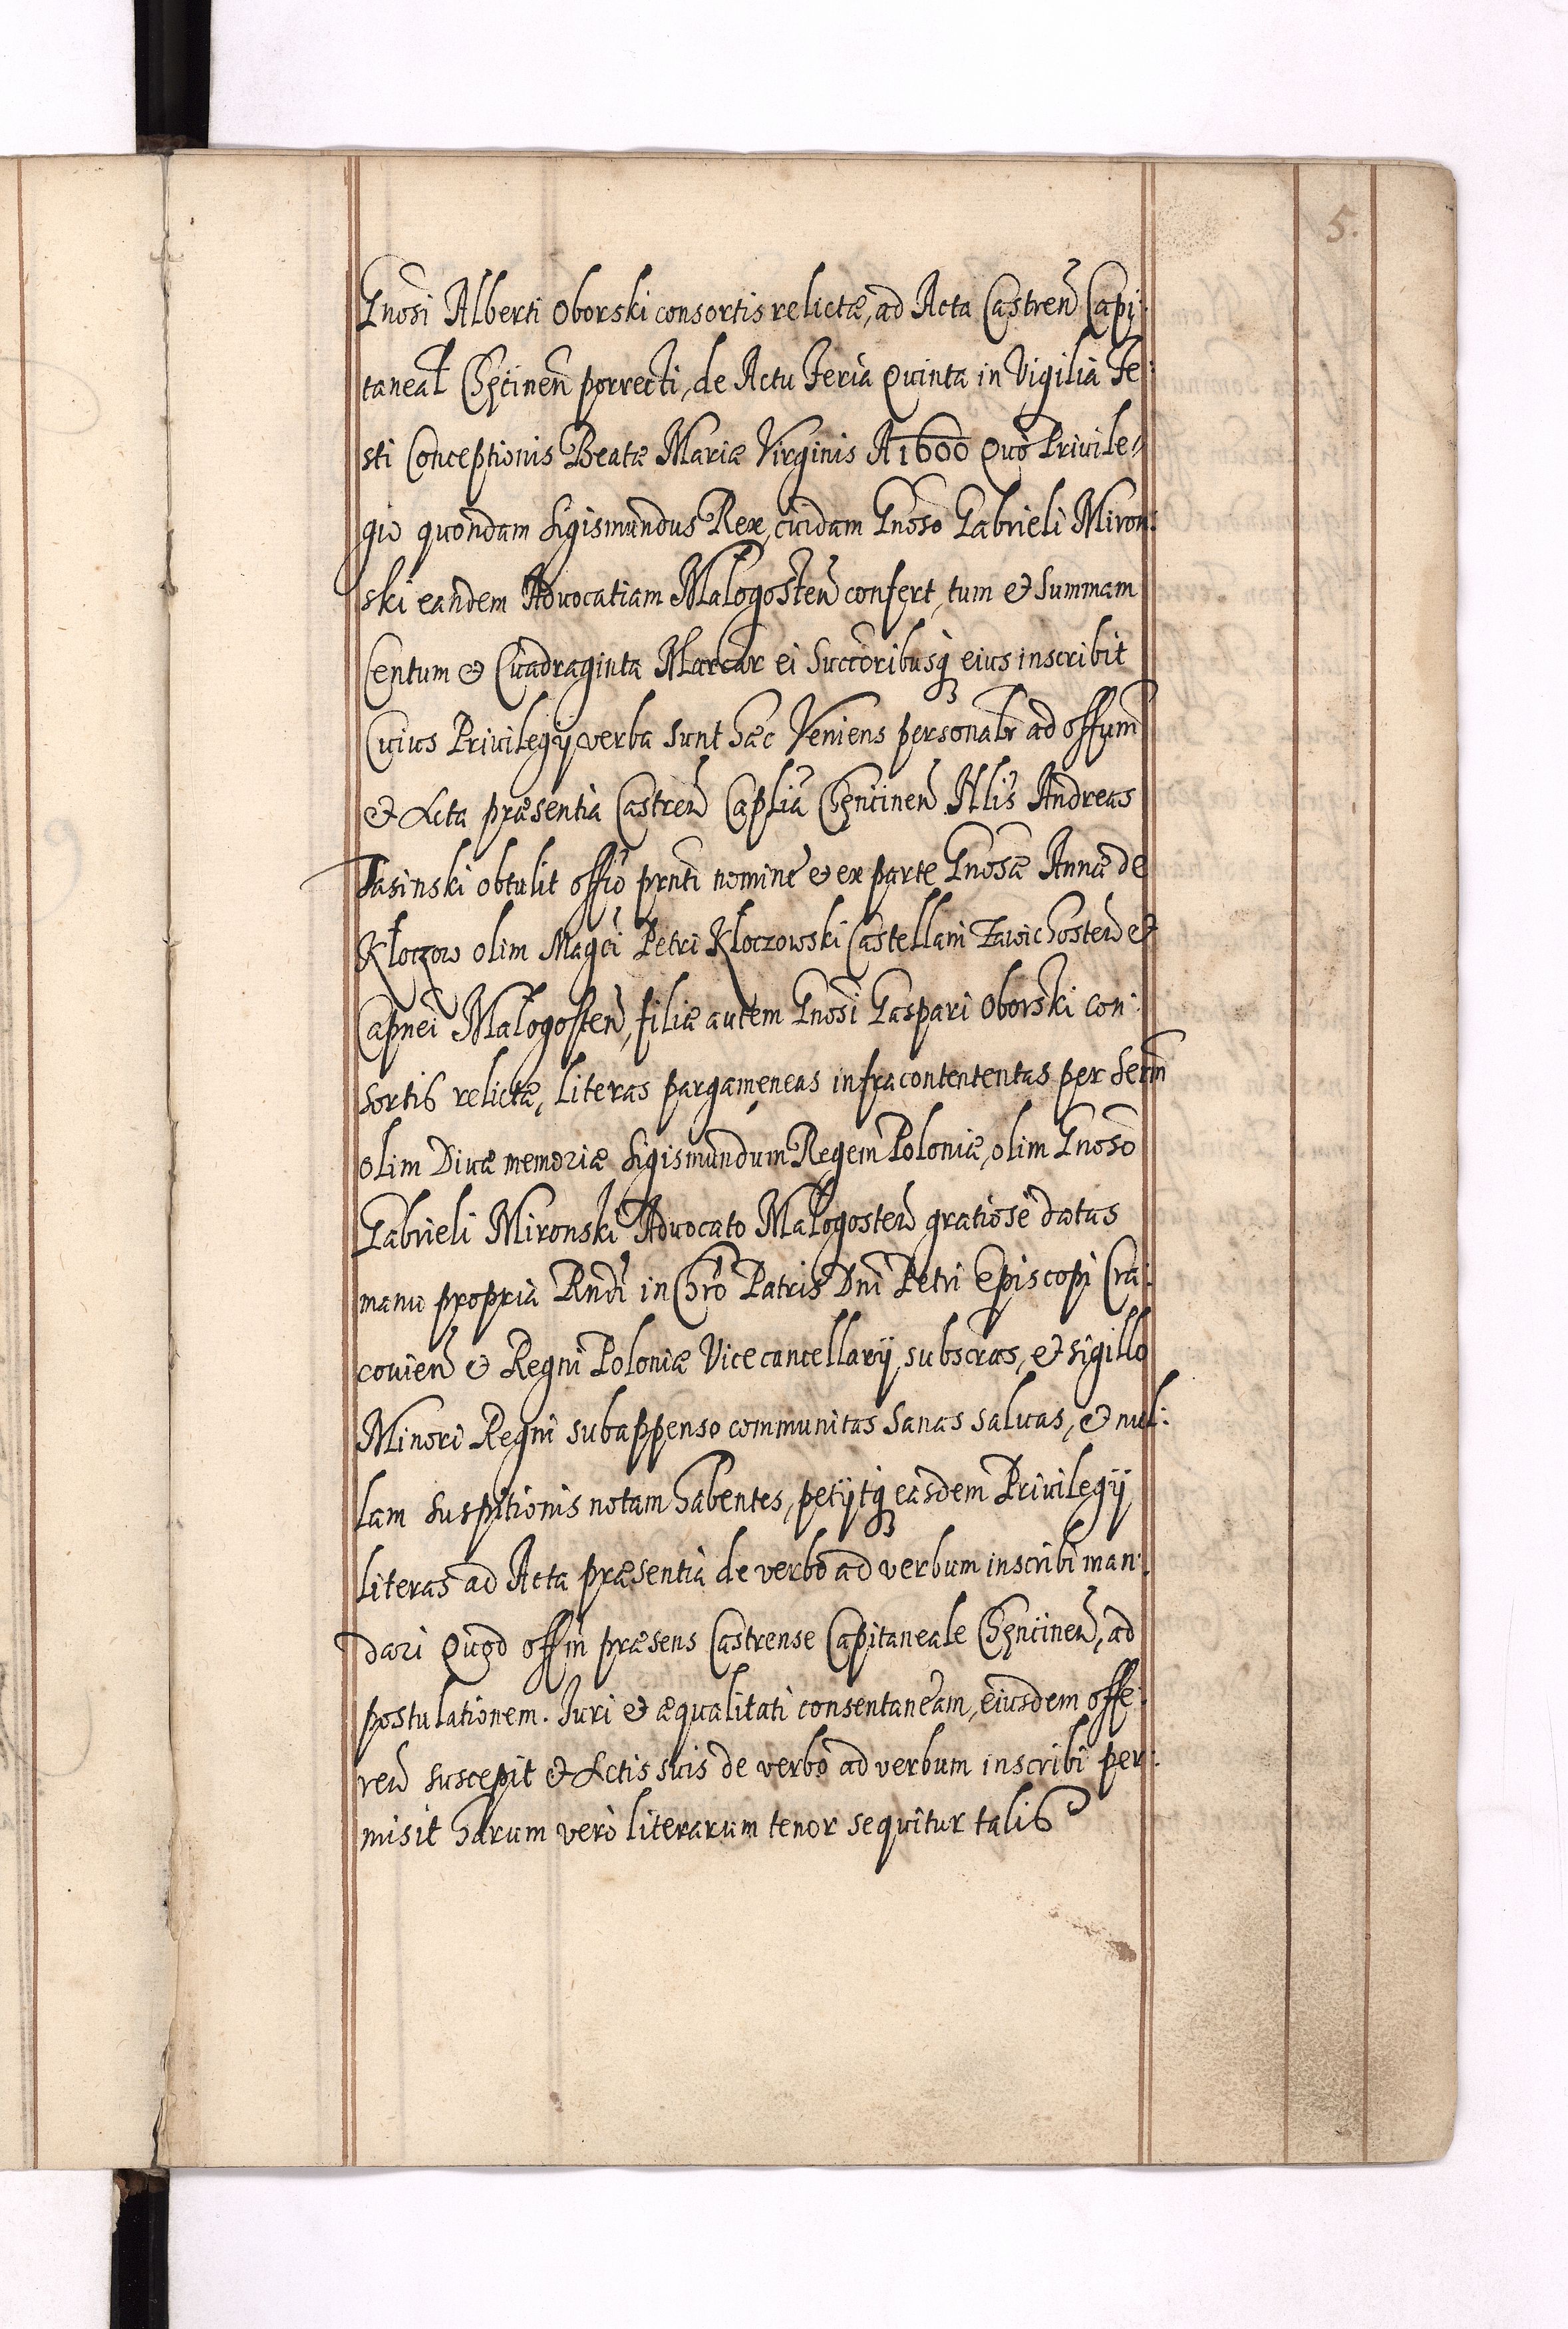 5.
Gnosi Alberti Oborski consortis relictæ, ad Acta Castreñ Capi:
taneal Chęcineñ porrecti, de Actu Feria Quinta in Vigilia Fe:
sti Conceptionis Beatæ Mariæ Virginis A 1600 Quo Priuile//
gio quondam Sigismundus Rex, cuidam Gnoso Gabrieli Miron:
ski eandem Aduocatiam Małogosteñ confert, tum et Summam
Centum et Quadraginta Marcar ei Succoribusq̃ eius inscribit
Cuius Priuilegij verba sunt hæc Veniens personalr ad offum
et Acta præsentia Castreñ Caplia Chęncineñ Nlis Andreas
Jasinski obtulit offio prnti nomine et ex parte Gnosæ Annæ de
Kłoczow olim Magci Petri Kłoczowski Castellani Zawichosteñ et
Capnei Małogosteñ, filiæ autem Gnosi Gaspari Oborski con:
sortis relictæ, literas pargameneas infracontententas per Serm
olim Diuæ memoriæ Sigismundum Regem Poloniæ, olim Gnoso
Gabrieli Mironski Aduocato Małogosteñ gratiose datas
manu propria Rndi in Chro Patris Dni Petri Episcopi Cra:
couieñ et Regni Poloniæ Vicecancellarij subscras, et sigillo
Minori Regni subappenso communitas sanas saluas, et nul:
lam Suspitionis notam habentes, petijtq̃ easdem Priuilegij
literas ad Acta præsentia de verbo ad verbum inscribi man:
dari Quod offm præsens Castrense Capitaneale Chęncineñ, ad
postulationem. Iuri et æqualitati consentaneam, eiusdem offe:
reñ suscepit et Actis suis de verbo ad verbum inscribi per:
misit harum vero literarum tenor sequitur talis